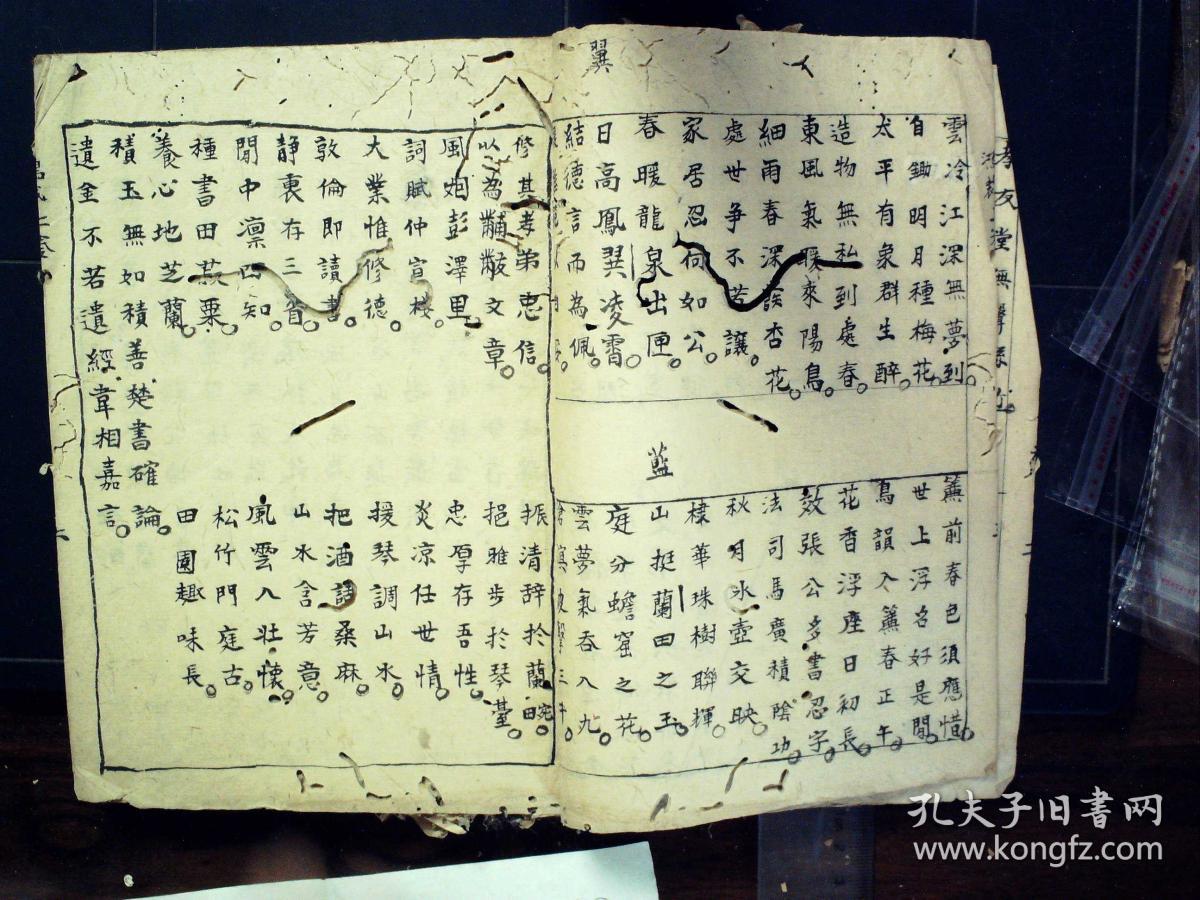 翼
雲冷江深無夢到
自鋤明月種梅花
太平有象群生醉
造物無私到處春
東風氣暖來陽鳥
細雨春深談杏花
處世爭不若讓
家居忍何如公
春暖龍泉出匣
日高鳳巽凌霄
結德言而為佩
藍
簾前春色須應惜
世上浮名好是閒
鳥韻入簾春正午
花香浮座日初長
效張公多書忍字
法司馬廣積陰功
秋月冰壺交映
棣華珠樹聯輝
山挺蘭田之玉
庭分蟾窟之花
雲夢氣吞八九
修其孝弟忠信
以為黼黻文章
風烟彭澤里
詞賦仲宣樓
大業惟修德
敦倫即讀書
静裏存三省
閒中凛四知
種書田菽粟
養心地芝蘭
積玉無如積善楚書確論
遺金不若遺經韋相嘉言
振清辞於蘭畹
挹雅步於琴臺
忠厚存吾性
炎凉任世情
援琴調山水
把酒話桑麻
山水含芳意
風雲入壯懷
松竹門庭古
田園趣味長
孔夫子旧书网
www.kongfz.com